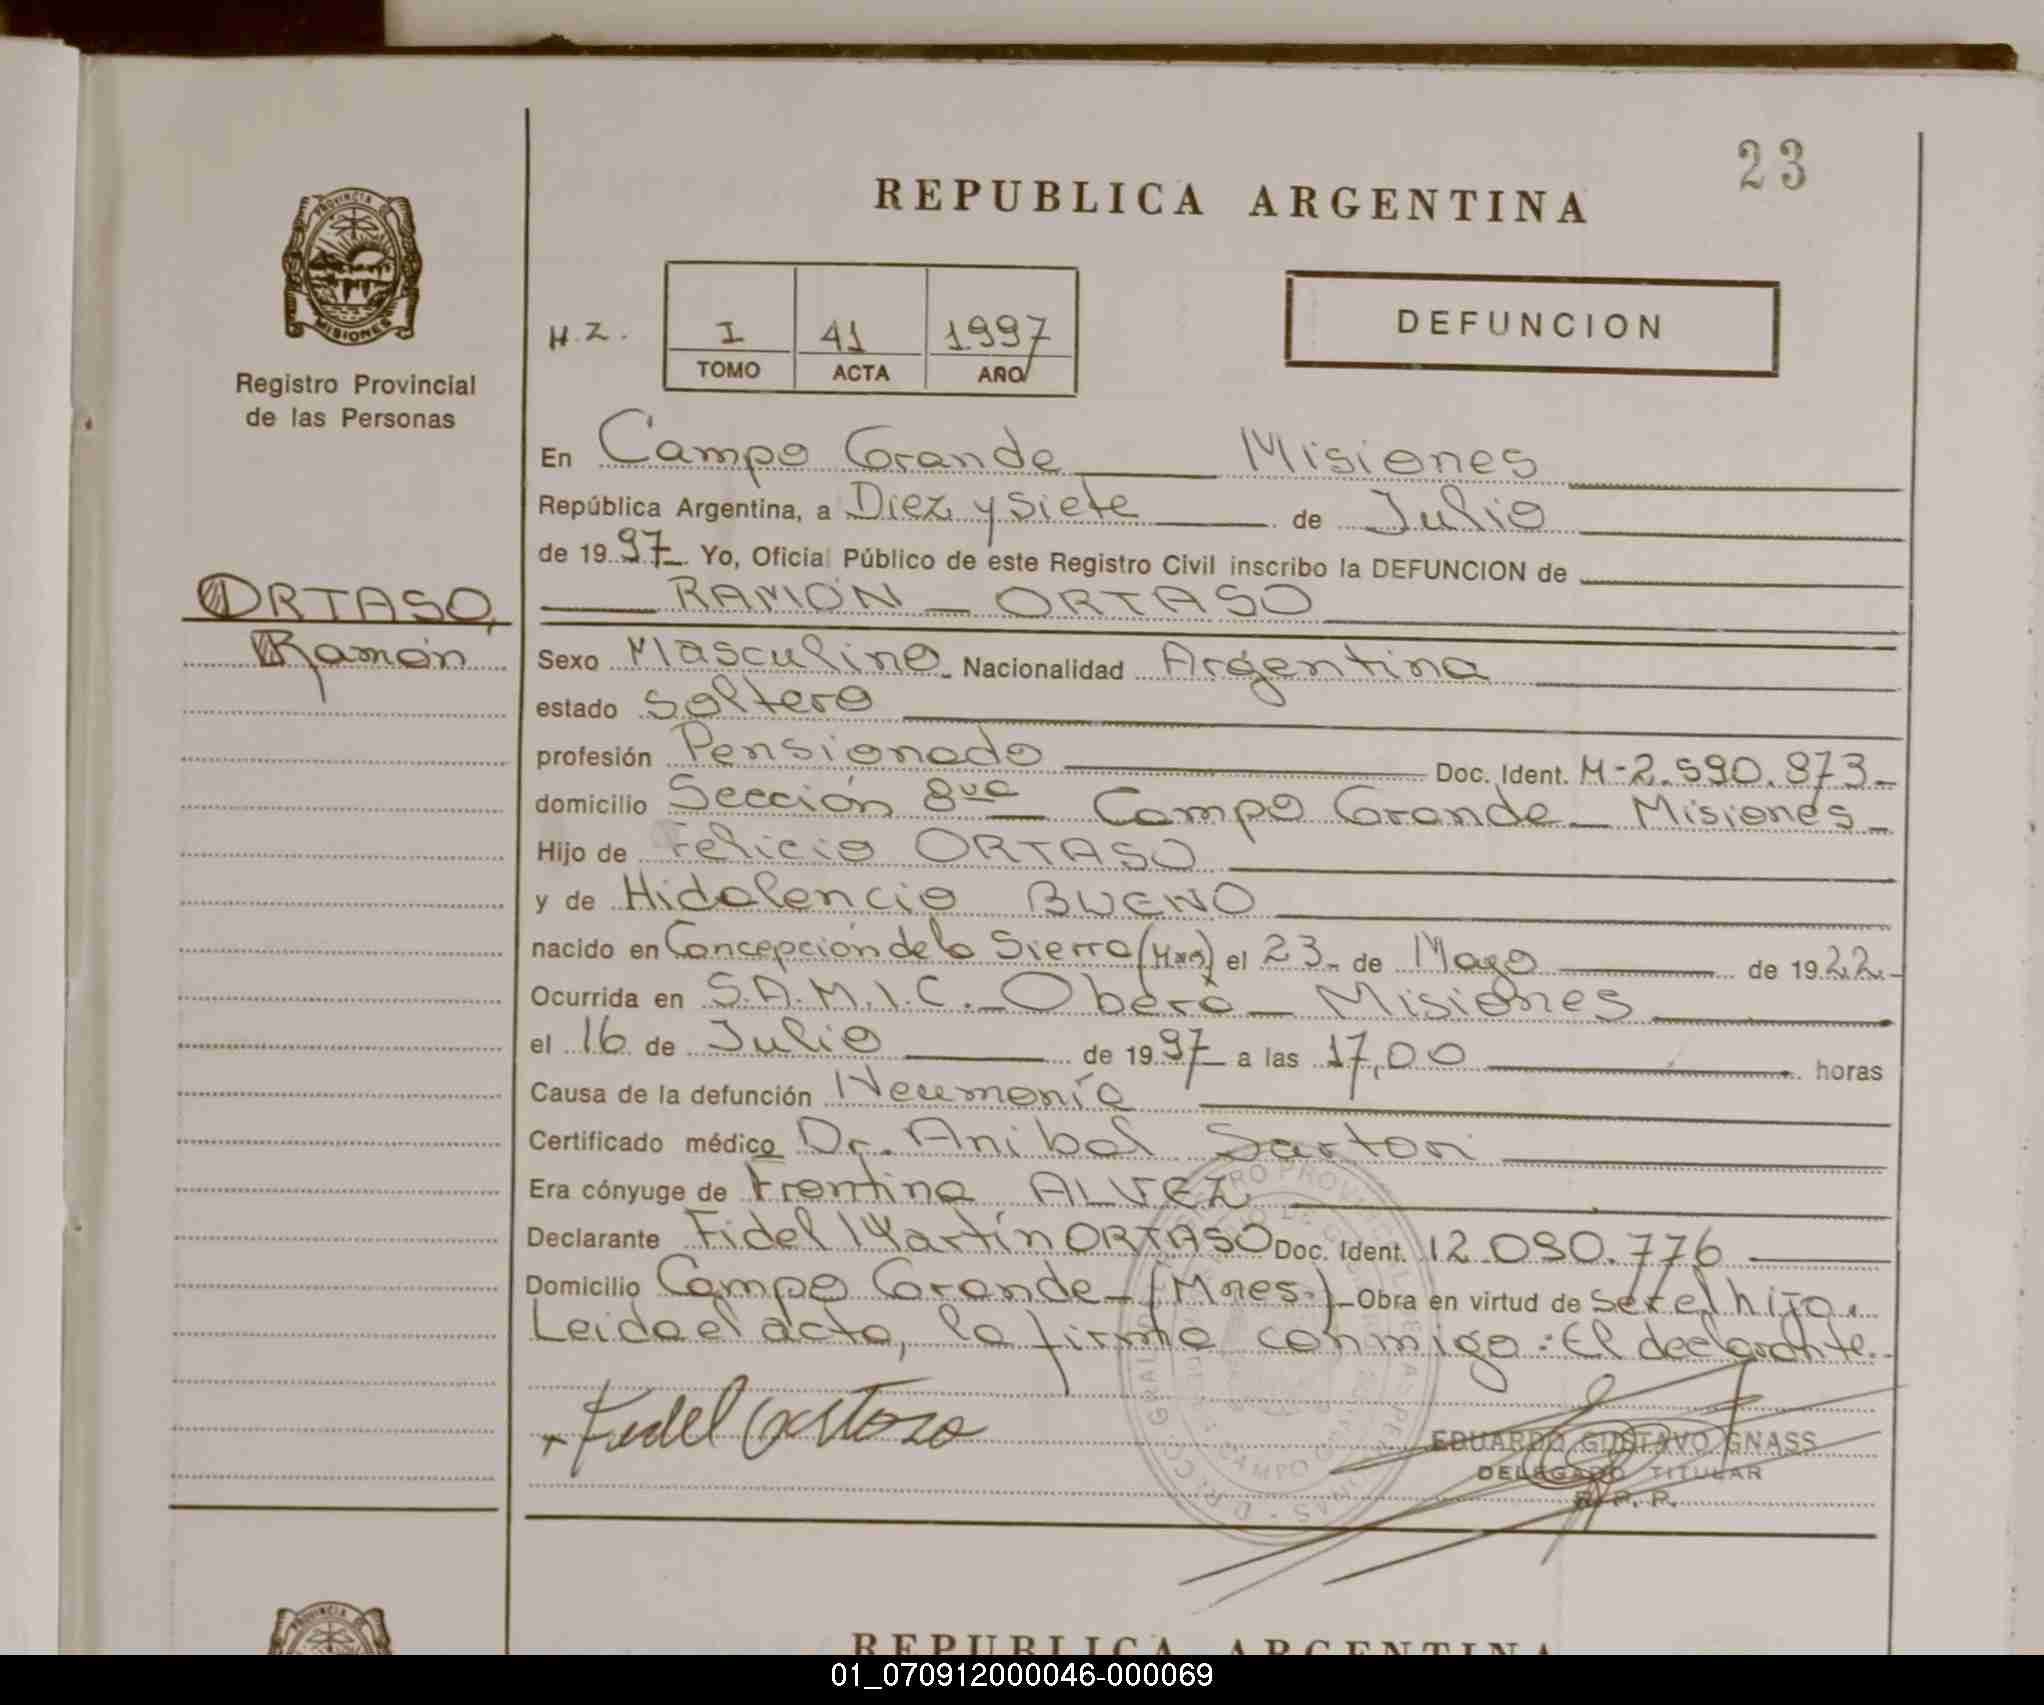 23
REPUBLICA ARGENTINA
PROVINCIA DE
MISIONES
Registro Provincial
de las Personas
H.Z. I 41 1997
TOMO ACTA AÑO
DEFUNCION
En Campo Grande Misiones
República Argentina, a Diez y siete de Julio
de 1997 Yo, Oficial Público de este Registro Civil inscribo la DEFUNCION de
ORTASO,
Ramón
RAMÓN ORTASO
Sexo Masculino Nacionalidad Argentina
estado soltero
profesión Pensionado Doc. Ident. M-2.590.873
domicilio Sección 8va Campo Grande Misiones
Hijo de Felicio ORTASO
y de Hidalencia BUENO
nacido en Concepción de la Sierra (Mnes) el 23 de Mayo de 1922
Ocurrida en S.A.M.I.C. Oberá Misiones
el 16 de Julio de 1997 a las 17,00 horas
Causa de la defunción Neumonía
Certificado médico Dr. Anibal Sartori
Era cónyuge de Frentina ALVEZ
Declarante Fidel Martín ORTASO Doc. Ident. 12.090.776
Domicilio Campo Grande (Mnes.) Obra en virtud de ser el hijo.
Leida el acta, la firma conmigo: El declarante.
Fidel Ortaso
EDUARDO GUSTAVO GNASS
DELEGADO TITULAR
R. P. P.
REPUBLICA ARGENTINA
01_070912000046-000069